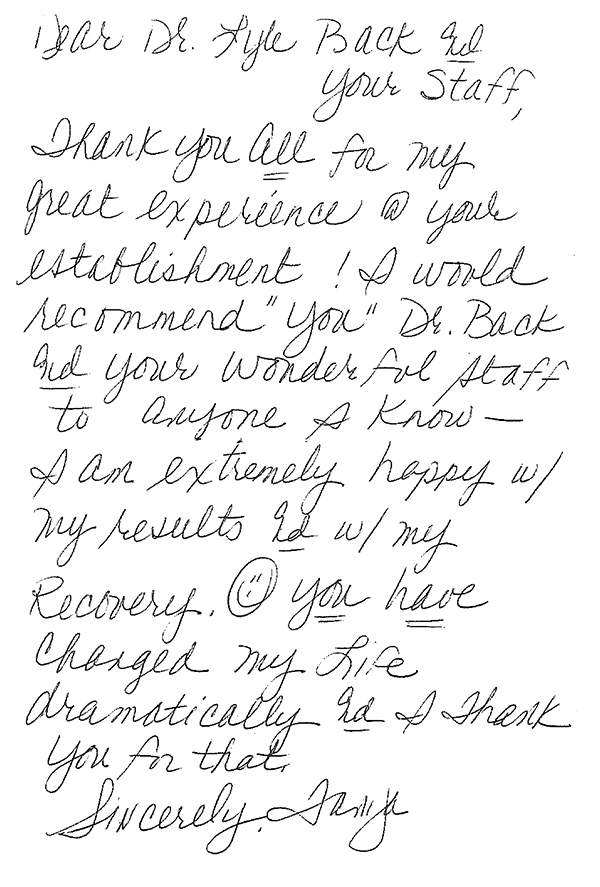 Dear Dr. Lyle Back And
Your Staff,
Thank you All for my
great experience @ your
establishment! I would
recommend "You" Dr. Back
And your wonderful staff
to anyone I Know —
I am extremely happy w/
my results And w/ my
Recovery. you have
changed my Life
dramatically And I thank
you for that.
Sincerely, Tanya